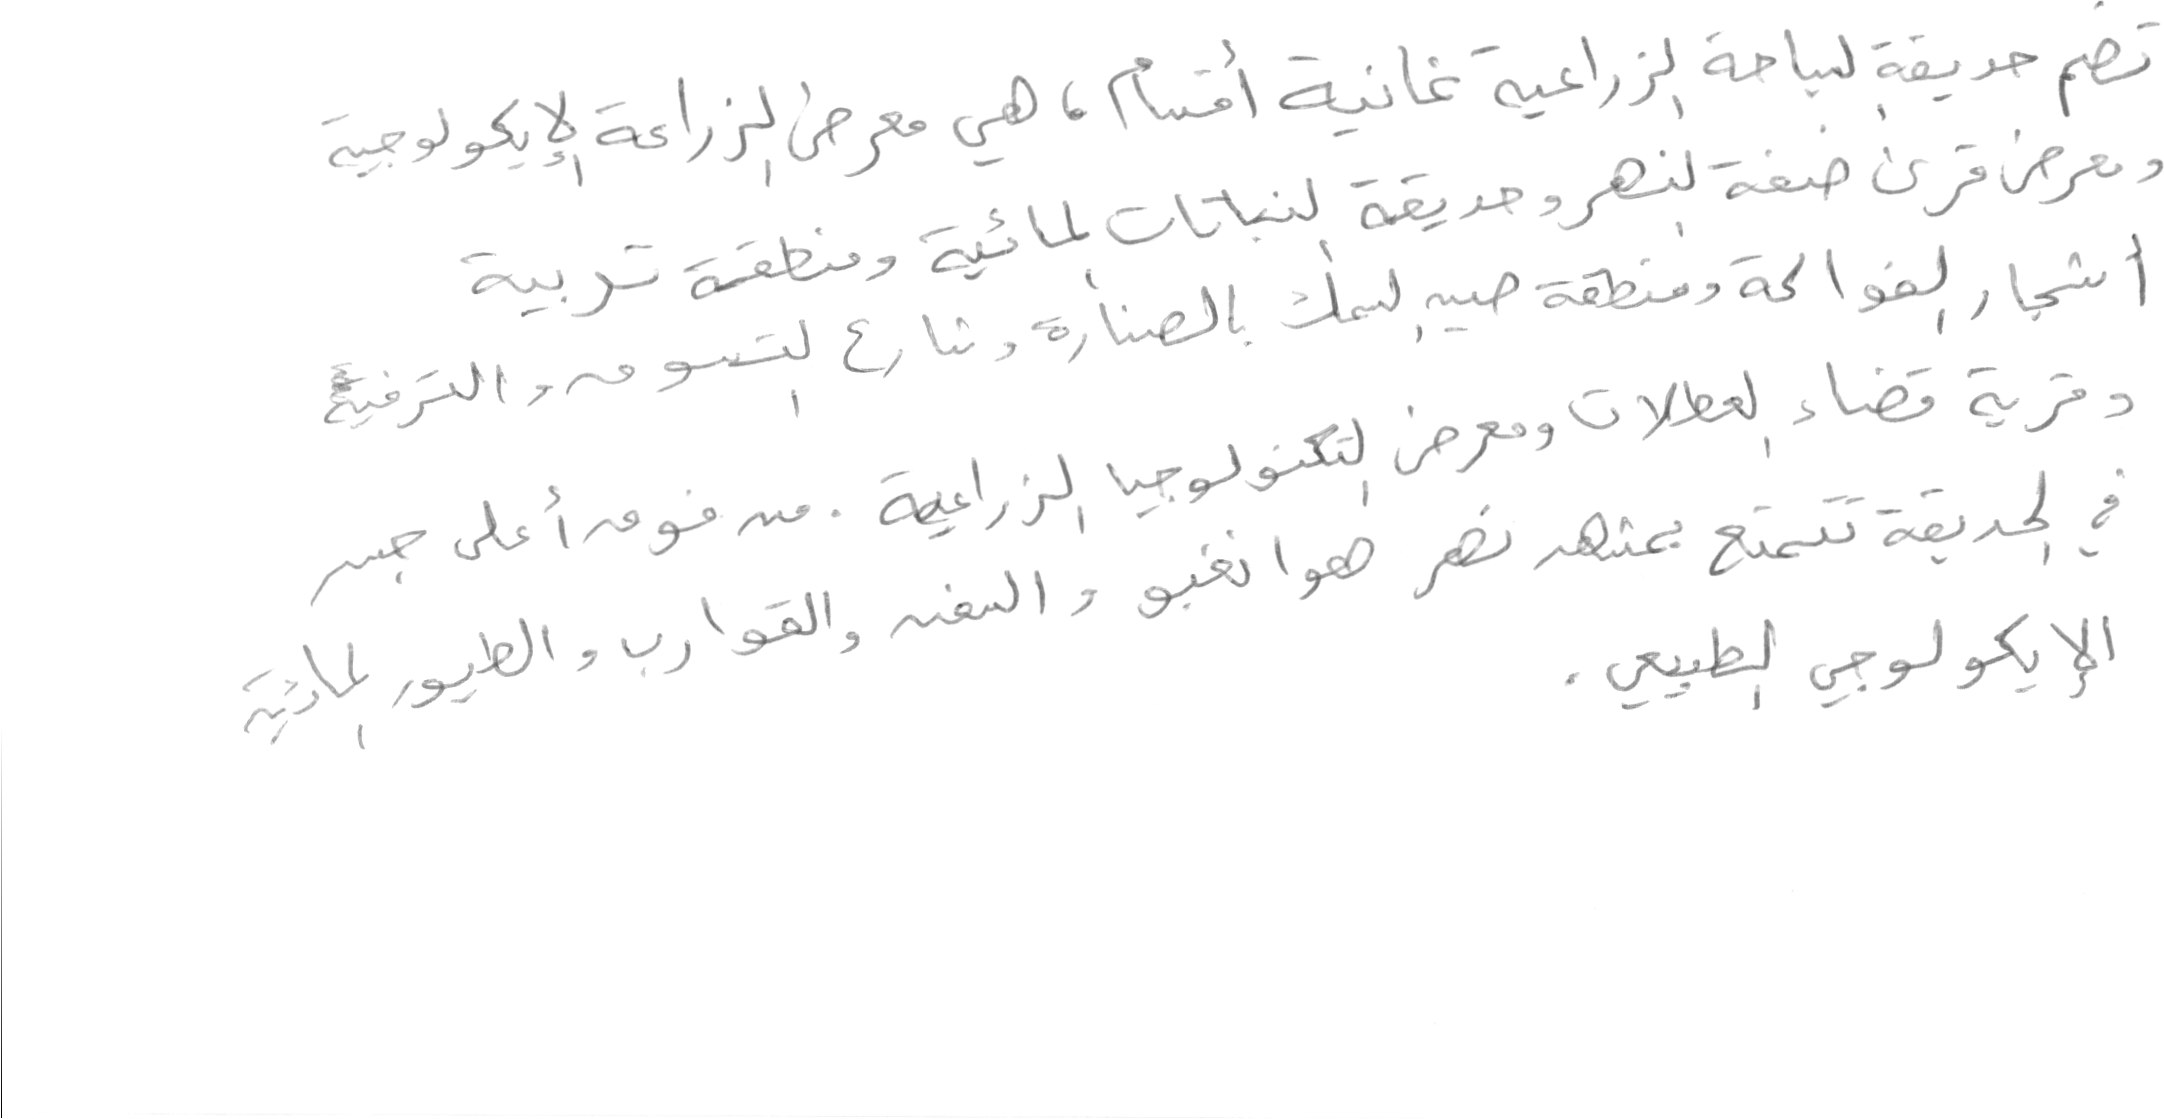 تضم حديقة السياحة الزراعية ثمانية أقسام، هي معرض الزراعة الإيكولوجية
ومعرض قرى ضفة النهر وحديقة النباتات المائية ومنطقة تربية
أشجار الفواكة ومنطقة صيد السمك بالصنارة وشارع التسوق والترفيه
وقرية قضاء العطلات ومعرض التكنولوجيا الزراعية. من فوق أعلى جسر
في الحديقة تتمتع بمشهد نهر هوانغبو والسفن والقوارب والطيور المائية
الإيكولوجي الطبيعي.